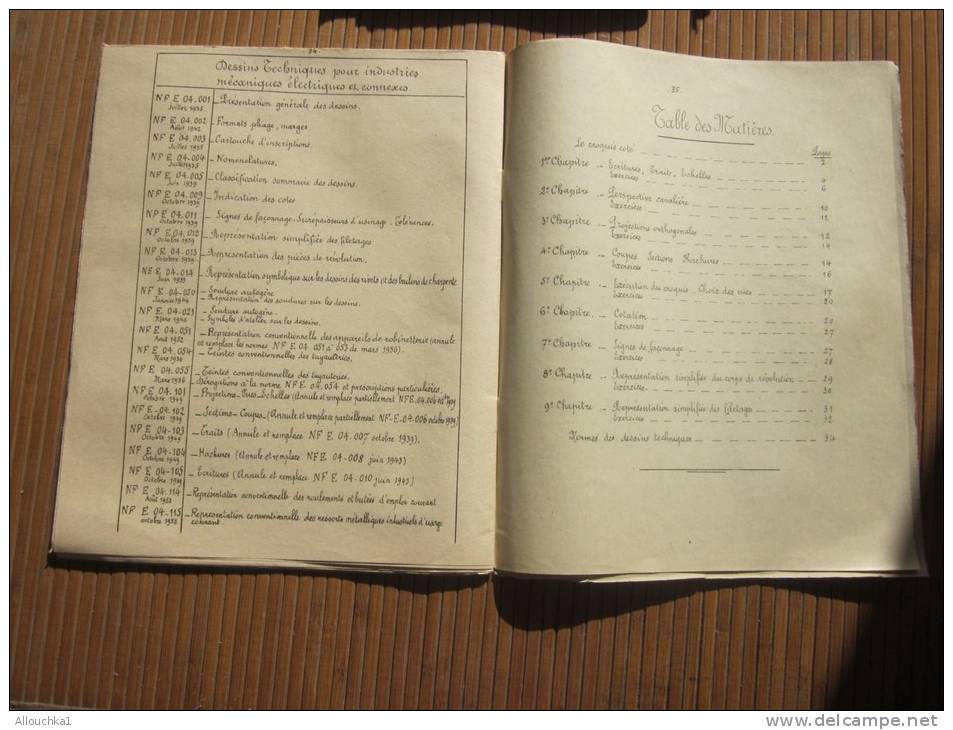 34.
Dessins Techniques pour industries
mécaniques électriques et connexes
NF E 04.001 _ Présentation générale des dessins.
Juillet 1935
NF E 04.002 _ Formats pliage, marges.
Août 1942
NF E 04.003 _ Cartouche d'inscriptions.
Juillet 1935
NF E 04.004 _ Nomenclatures.
Juillet 1935
NF E 04.005 _ Classification sommaire des dessins.
Juin 1939
NF E 04.009 _ Indication des cotes
Octobre 1939
NF E 04.011 _ Signes de façonnage. Surépaisseurs d'usinage. Tolérances.
Octobre 1939
NF E 04.012 _ Représentation simplifiée des filetages
Octobre 1939
NF E 04.013 _ Représentation des pièces de révolution.
Octobre 1939
NF E 04-014 _ Représentation symbolique sur les dessins des rivets et des boulons de charpente
Juin 1933
NF E 04-020 _ Soudure autogène
Janvier 1944 _ Représentation des soudures sur les dessins.
NF E 04-021 _ Soudure autogène.
Mars 1946 _ Symboles d'atelier sur les dessins.
NF E 04.051 _ Représentation conventionnelle des appareils de robinetterie (annule
Août 1952 et remplace les normes NF E 04 051 à 053 de mars 1936).
NF E 04.054 _ Teintes conventionnelles des tuyauteries.
Mars 1936
NF E 04.055 _ Teintes conventionnelles des tuyauteries.
Mars 1936 _ Dérogations à la norme NF E 04.054 et prescriptions particulières.
NF E 04.101 _ Projections. Vues. Echelles (Annule et remplace partiellement NF E. 04.006 1939
Octobre 1949
NF E-04.102 _ Sections-Coupes (Annule et remplace partiellement NF-E-04.006 octobre 1939)
Octobre 1949
NF E 04-103 _ Traits (Annule et remplace NF E 04.007 octobre 1939).
Octobre 1949
NF E 04-104 _ Hachures (Annule et remplace NF E 04-008 juin 1943)
Octobre 1949
NF E 04-105 _ Ecritures (Annule et remplace NF E 04-010 juin 1943)
Octobre 1949
NF E 04.114 _ Représentation conventionnelle des roulements et butées d'emploi courant
Août 1952
NF E 04-115 _ Représentation conventionnelle des ressorts métalliques industriels d'usage
octobre 1952 courant.
35.
Table des Matières.
Pages
Le croquis coté 2
1er Chapitre _ Ecritures, Traits, Echelles 4
Exercices 6
2e Chapitre _ Perspective cavalière 10
Exercices 11
3e Chapitre _ Projections orthogonales 12
Exercices 14
4e Chapitre _ Coupes Sections Hachures 14
Exercices 16
5e Chapitre _ Exécution du croquis - Choix des vues 17
Exercices 20
6e Chapitre _ Cotation 20
Exercices 27
7e Chapitre _ Signes de façonnage 27
Exercices 28
8e Chapitre _ Représentation simplifiée des corps de révolution 29
Exercices 30
9e Chapitre _ Représentation simplifiée des filetages 31
Exercices 32
Normes des dessins techniques 34
Allouchka1
www.delcampe.net